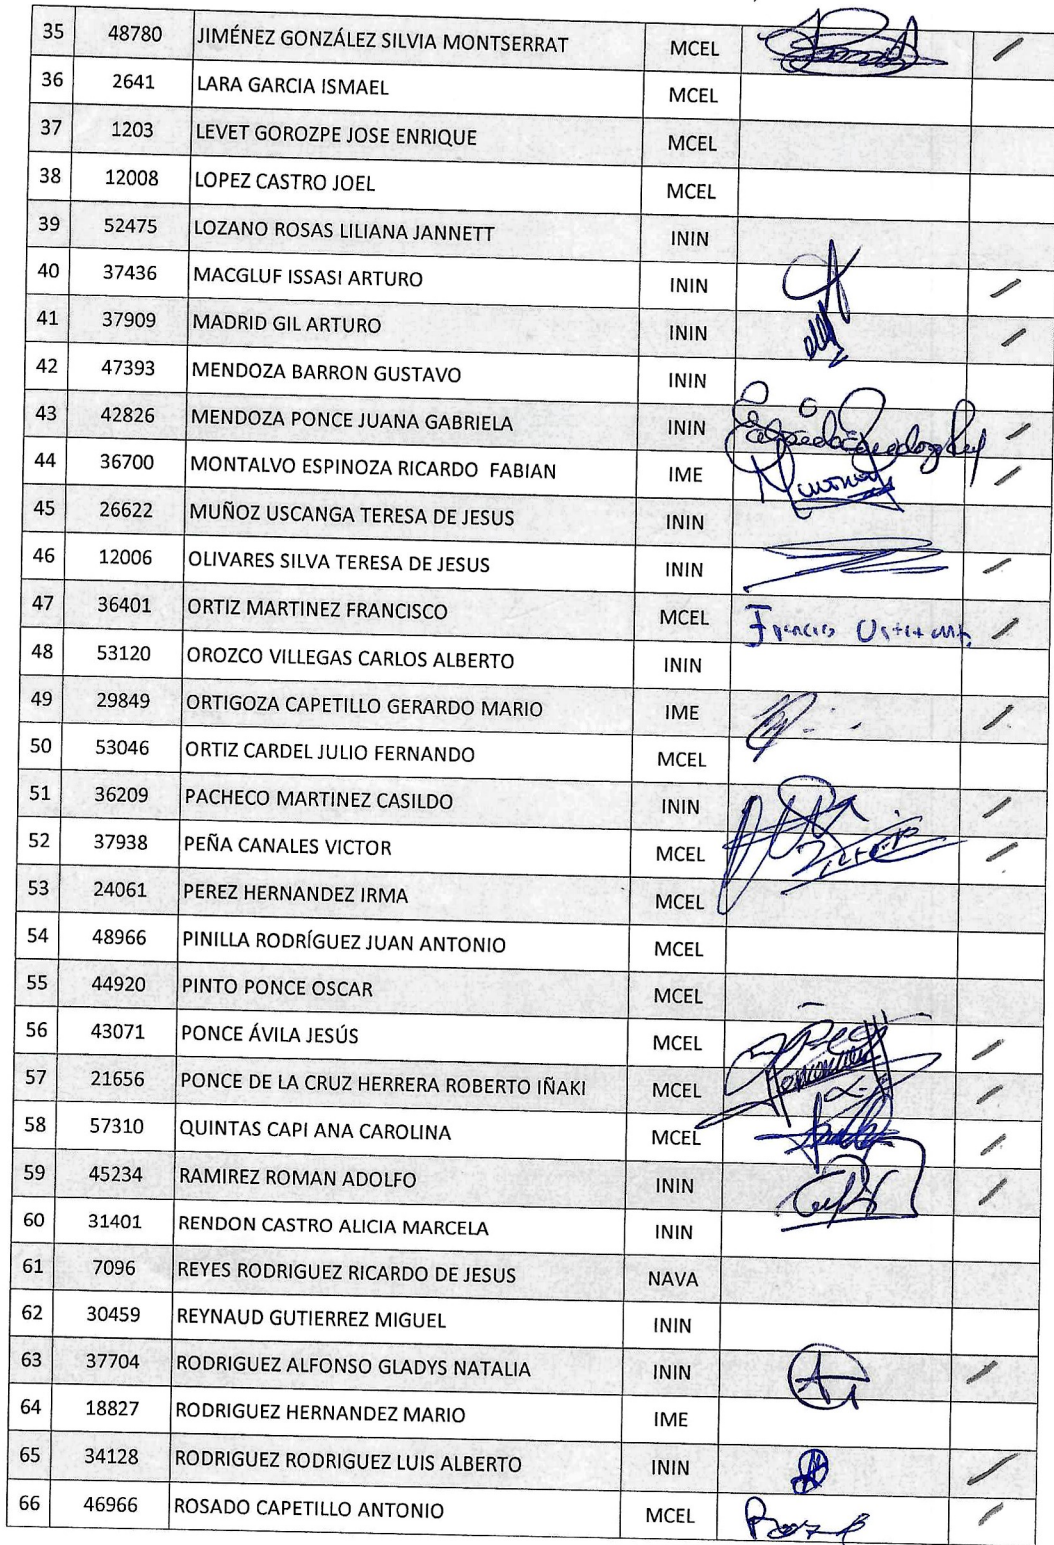 35 48780 JIMÉNEZ GONZÁLEZ SILVIA MONTSERRAT MCEL
36 2641 LARA GARCIA ISMAEL MCEL
37 1203 LEVET GOROZPE JOSE ENRIQUE MCEL
38 12008 LOPEZ CASTRO JOEL MCEL
39 52475 LOZANO ROSAS LILIANA JANNETT ININ
40 37436 MACGLUF ISSASI ARTURO ININ
41 37909 MADRID GIL ARTURO ININ
42 47393 MENDOZA BARRON GUSTAVO ININ
43 42826 MENDOZA PONCE JUANA GABRIELA ININ
44 36700 MONTALVO ESPINOZA RICARDO FABIAN IME
45 26622 MUÑOZ USCANGA TERESA DE JESUS ININ
46 12006 OLIVARES SILVA TERESA DE JESUS ININ
47 36401 ORTIZ MARTINEZ FRANCISCO MCEL
48 53120 OROZCO VILLEGAS CARLOS ALBERTO ININ
49 29849 ORTIGOZA CAPETILLO GERARDO MARIO IME
50 53046 ORTIZ CARDEL JULIO FERNANDO MCEL
51 36209 PACHECO MARTINEZ CASILDO ININ
52 37938 PEÑA CANALES VICTOR MCEL
53 24061 PEREZ HERNANDEZ IRMA MCEL
54 48966 PINILLA RODRÍGUEZ JUAN ANTONIO MCEL
55 44920 PINTO PONCE OSCAR MCEL
56 43071 PONCE ÁVILA JESÚS MCEL
57 21656 PONCE DE LA CRUZ HERRERA ROBERTO IÑAKI MCEL
58 57310 QUINTAS CAPI ANA CAROLINA MCEL
59 45234 RAMIREZ ROMAN ADOLFO ININ
60 31401 RENDON CASTRO ALICIA MARCELA ININ
61 7096 REYES RODRIGUEZ RICARDO DE JESUS NAVA
62 30459 REYNAUD GUTIERREZ MIGUEL ININ
63 37704 RODRIGUEZ ALFONSO GLADYS NATALIA ININ
64 18827 RODRIGUEZ HERNANDEZ MARIO IME
65 34128 RODRIGUEZ RODRIGUEZ LUIS ALBERTO ININ
66 46966 ROSADO CAPETILLO ANTONIO MCEL